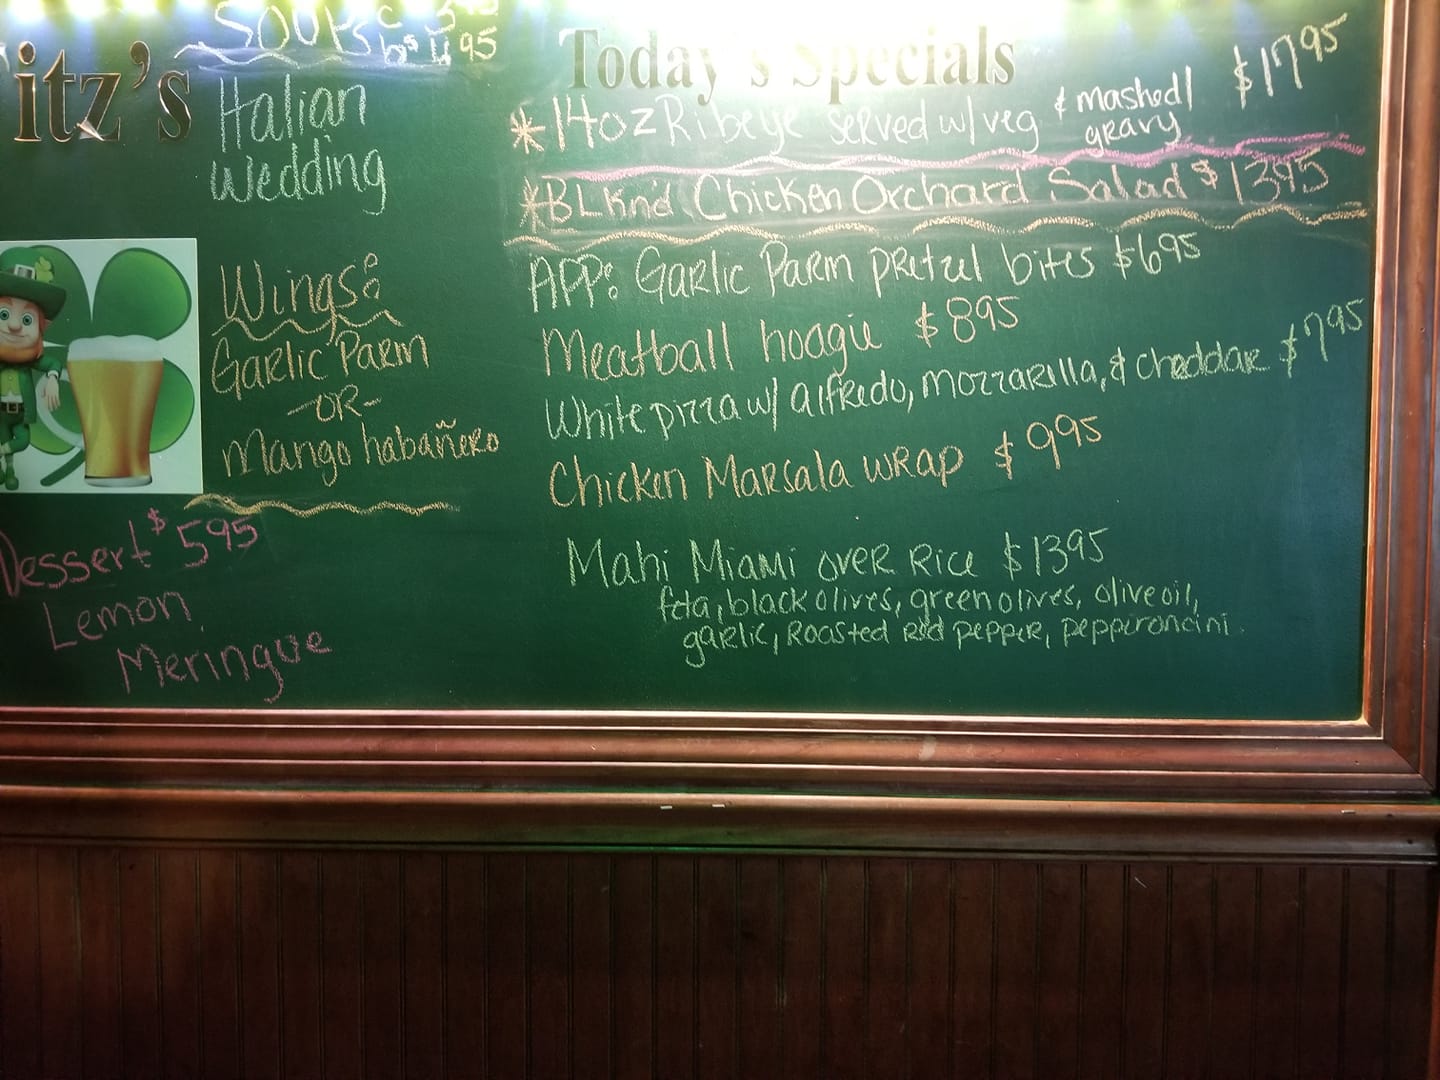 itz's
SOUPS c 3.95
b 4.95
Italian
wedding
Wings:
Garlic Parm
-OR-
Mango habañero
Dessert $5.95
Lemon
Meringue
Today's Specials
*14oz Ribeye served w/ veg & mashed/ gravy $17.95
*BLKn'd Chicken Orchard Salad $13.95
APP: Garlic Parm pretzel bites $6.95
Meatball hoagie $8.95
White pizza w/ alfredo, mozzarella, & cheddar $7.95
Chicken Marsala wrap $9.95
Mahi Miami over Rice $13.95
feta, black olives, green olives, olive oil,
garlic, Roasted red pepper, pepperoncini